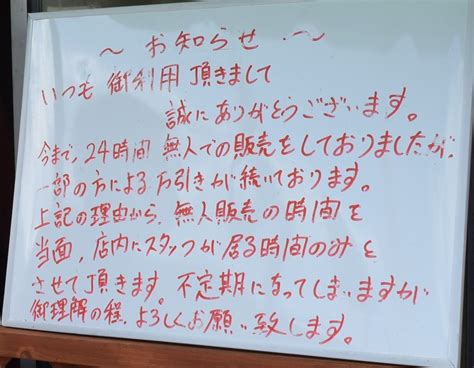 ～ お知らせ ～
いつも 御利用 頂きまして
誠にありがとうございます。
今まで、24時間 無人での販売をしておりましたが、
一部の方による万引きが続いております。
上記の理由から、無人販売の時間を
当面、店内にスタッフが居る時間のみと
させて頂きます。不定期になってしまいますが
御理解の程、よろしくお願い致します。